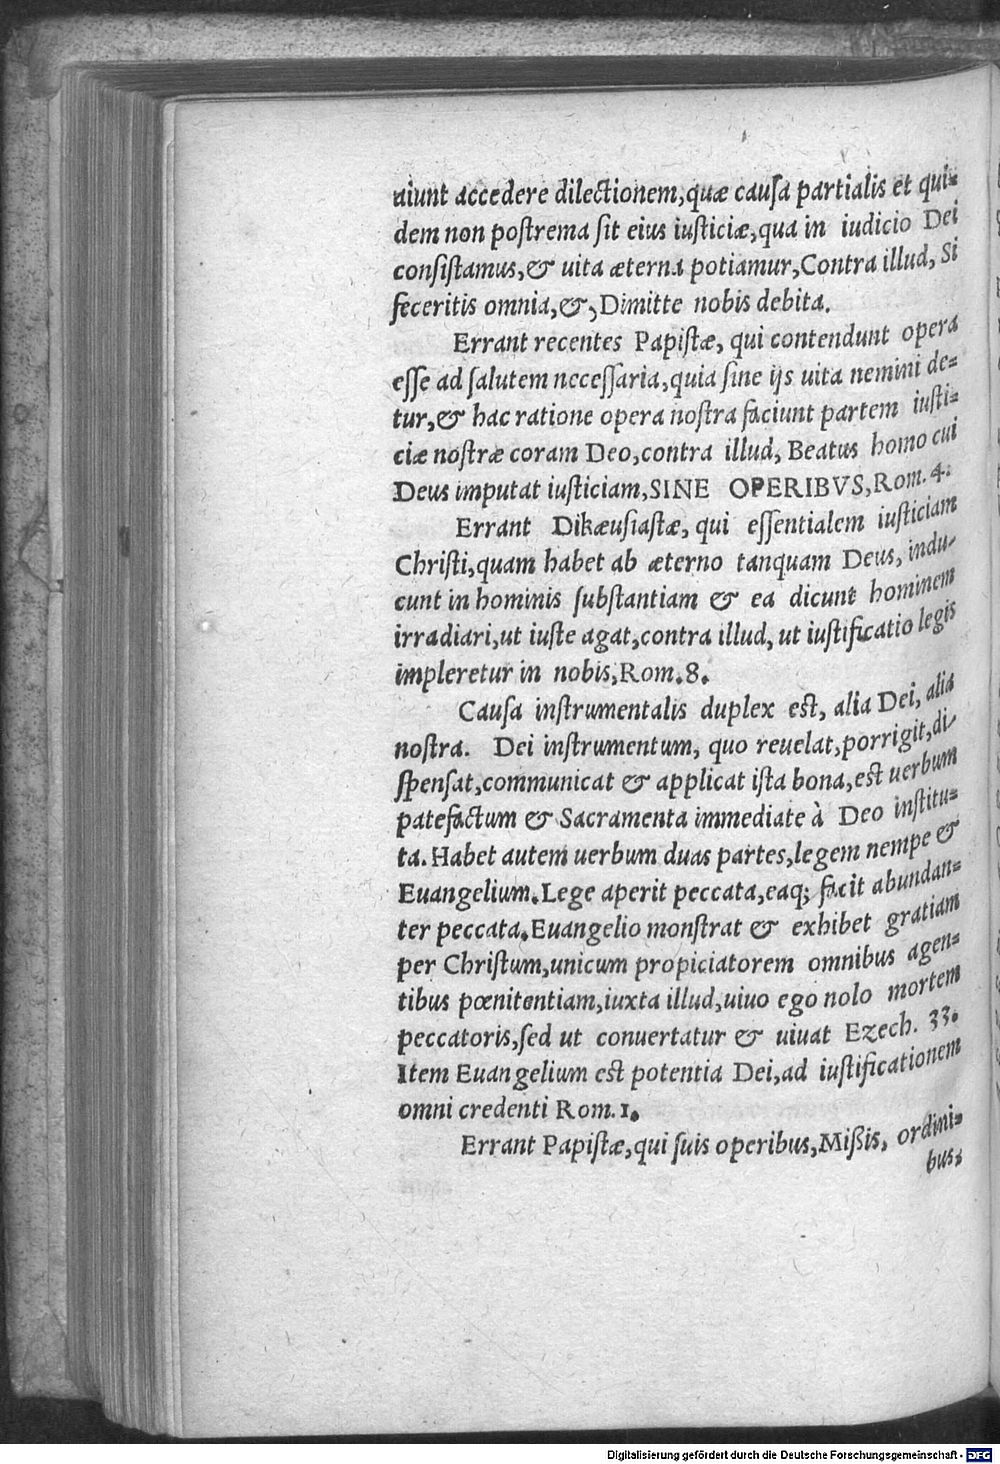 aiunt accedere dilectionem,quæ cauſa partialis et qui=
dem non poſtrema ſit eius iuſticiæ,qua in iudicio Dei
conſiſtamus,& uita æterna potiamur,Contra illud, Si
feceritis omnia,&,Dimitte nobis debita.
Errant recentes Papiſtæ, qui contendunt opera
eſſe ad ſalutem neceſſaria,quia ſine ijs uita nemini de=
tur,& hac ratione opera noſtra faciunt partem iuſti=
ciæ noſtræ coram Deo,contra illud, Beatus homo cui
Deus imputat iuſticiam,SINE OPERIBVS,Rom. 4.
Errant Dikæuſiaſtæ, qui eſſentialem iuſticiam
Chriſti,quam habet ab æterno tanquam Deus, indu-
cunt in hominis ſubſtantiam & ea dicunt hominem
irradiari,ut iuſte agat,contra illud, ut iuſtificatio legis
impleretur in nobis,Rom.8.
Cauſa inſtrumentalis duplex eſt, alia Dei, alia
noſtra. Dei inſtrumentum, quo reuelat,porrigit,di-
ſpenſat,communicat & applicat iſta bona,eſt uerbum
patefactum & Sacramenta immediate à Deo inſtitu=
ta. Habet autem uerbum duas partes,legem nempe &
Euangelium.Lege aperit peccata,eaq; facit abundan=
ter peccata.Euangelio monſtrat & exhibet gratiam
per Chriſtum,unicum propiciatorem omnibus agen=
tibus pœnitentiam,iuxta illud,uiuo ego nolo mortem
peccatoris,ſed ut conuertatur & uiuat Ezech. 33.
Item Euangelium eſt potentia Dei,ad iuſtificationem
omni credenti Rom.1.
Errant Papiſtæ,qui ſuis operibus,Mißis, ordini=
bus;
Digitalisierung gefördert durch die Deutsche Forschungsgemeinschaft - DFG